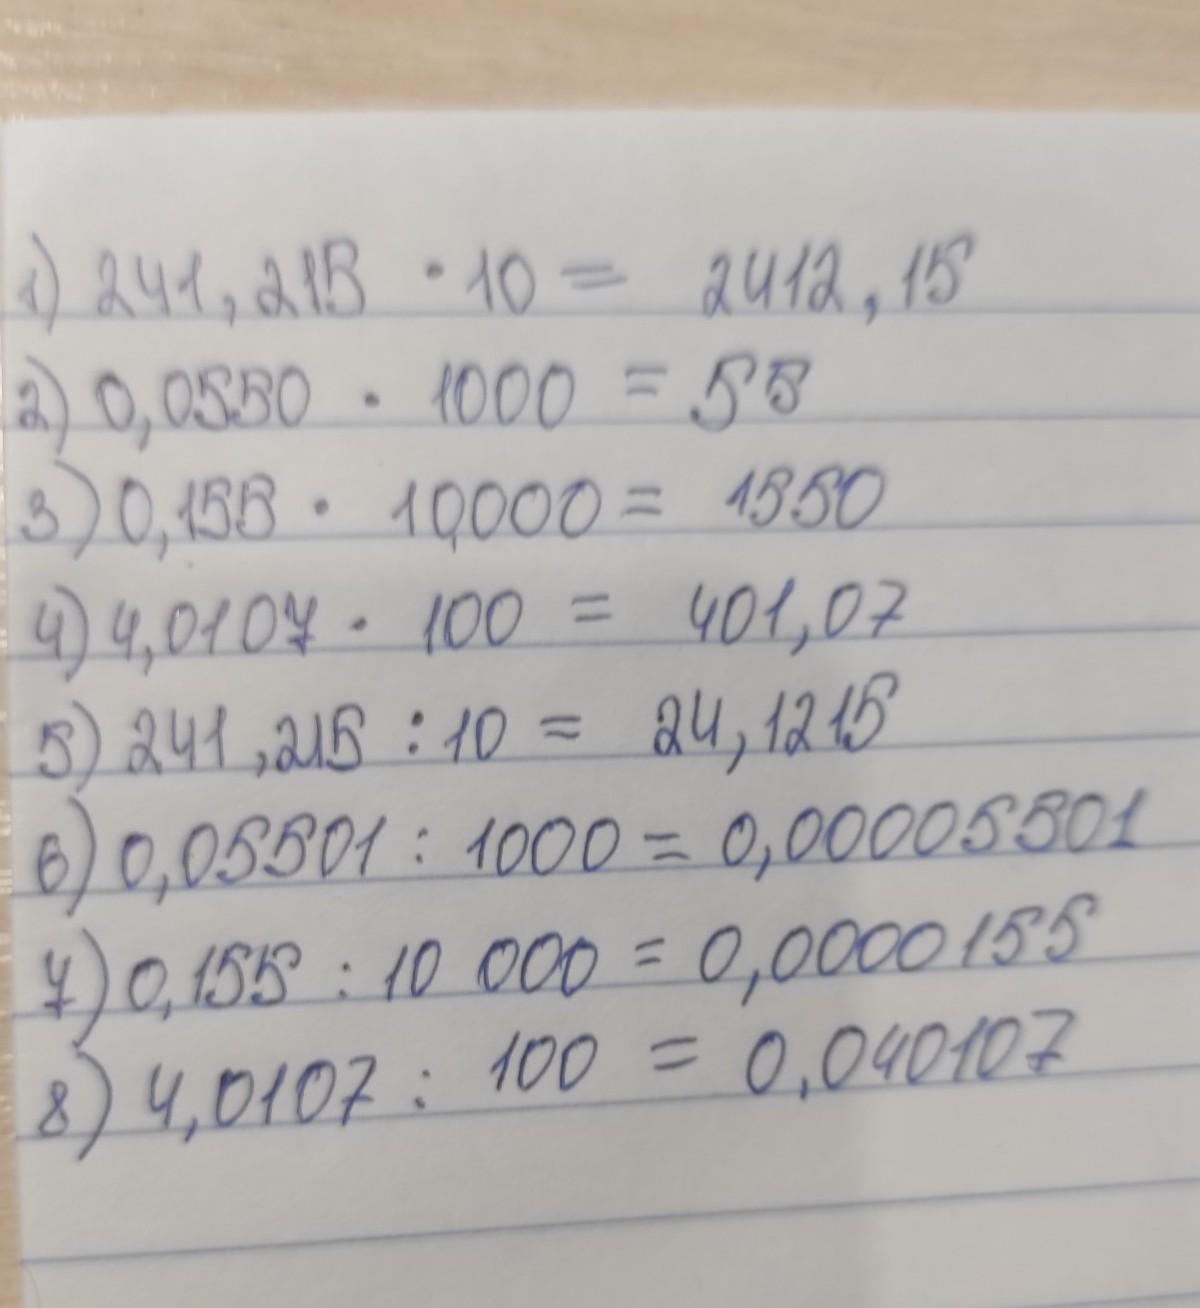 1) 241,215 · 10 = 2412,15
2) 0,0550 · 1000 = 55
3) 0,155 · 10,000 = 1550
4) 4,0107 · 100 = 401,07
5) 241,215 : 10 = 24,1215
6) 0,05501 : 1000 = 0,00005501
7) 0,155 : 10 000 = 0,0000155
8) 4,0107 : 100 = 0,040107